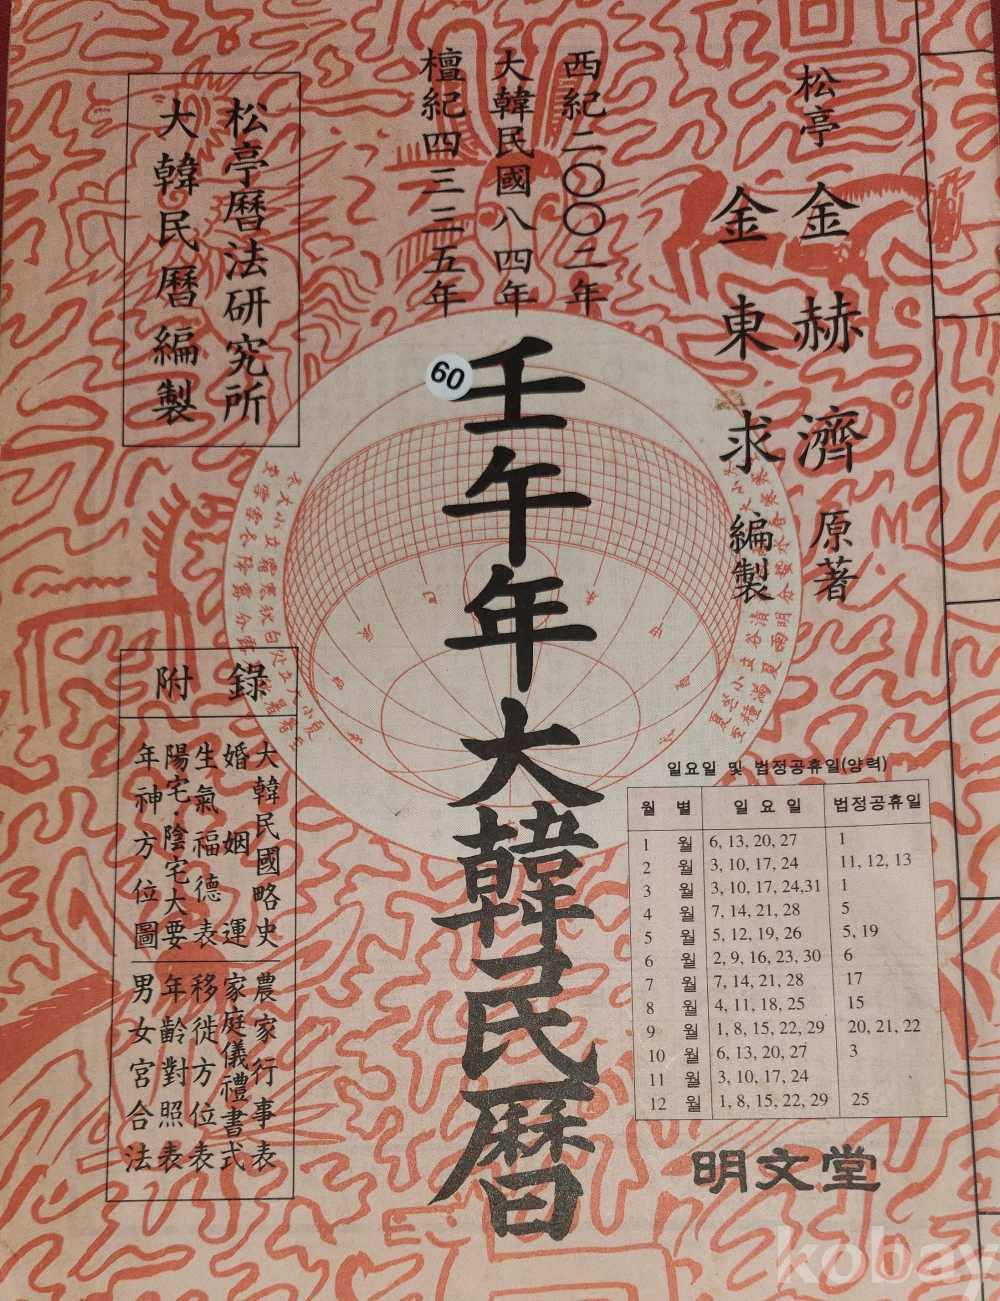 松亭 金赫濟 原著
金東求 編製
西紀二〇〇二年
大韓民國八四年
檀紀四三三五年
壬午年大韓民曆
60
松亭曆法研究所
大韓民曆編製
附錄
大韓民國略史
婚姻運
生氣福德表
陽宅·陰宅大要
年神方位圖
農家行事表
家庭儀禮書式
移徙方位表
年齡對照表
男女宮合法
일요일 및 법정공휴일(양력)
월 별 일 요 일 법정공휴일
1 월 6, 13, 20, 27 1
2 월 3, 10, 17, 24 11, 12, 13
3 월 3, 10, 17, 24,31 1
4 월 7, 14, 21, 28 5
5 월 5, 12, 19, 26 5, 19
6 월 2, 9, 16, 23, 30 6
7 월 7, 14, 21, 28 17
8 월 4, 11, 18, 25 15
9 월 1, 8, 15, 22, 29 20, 21, 22
10 월 6, 13, 20, 27 3
11 월 3, 10, 17, 24
12 월 1, 8, 15, 22, 29 25
明文堂
kobay